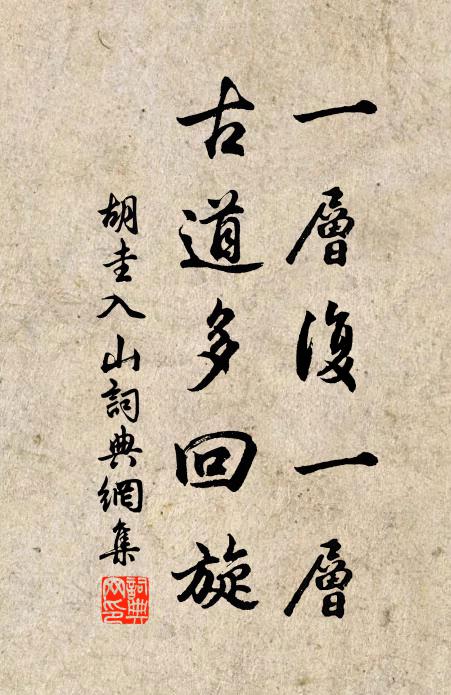 一層復一層
古道多回旋
胡圭入山詞典網集
詞典网印